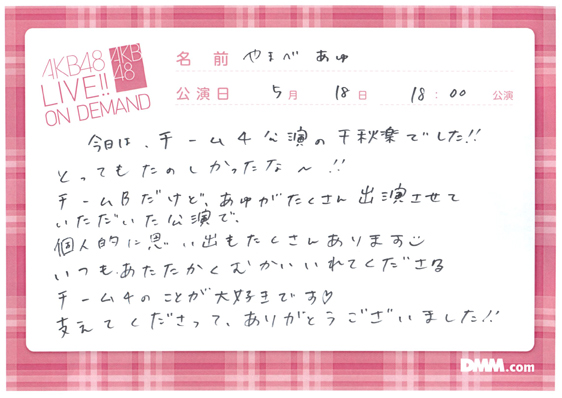 AKB48
LIVE!!
ON DEMAND
AKB
48
名前 やまべ あゆ
公演日 5月 18日 18:00 公演
今日は、チーム4公演の千秋楽でした!!
とってもたのしかったな〜!!
チームBだけど、あゆがたくさん出演させて
いただいた公演で、
個人的に思い出もたくさんあります
いつもあたたかくむかいいれてくださる
チーム4のことが大好きです♡
支えてくださって、ありがとうございました!!
DMM.com